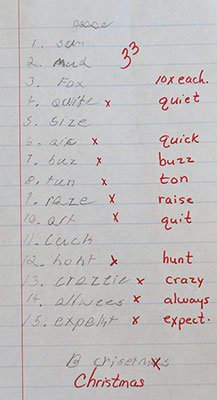 goose
1. san
2. mud 3³
3. Fox 10x each.
4. quite x quiet
5. size
6. qik x quick
7. buz x buzz
8. tun x ton
9. raze x raise
10. qit x quit
11. luck
12. hont x hunt
13. crazzie x crazy
14. allwees x always
15. expeht x expect.
B crisetmas x
Christmas